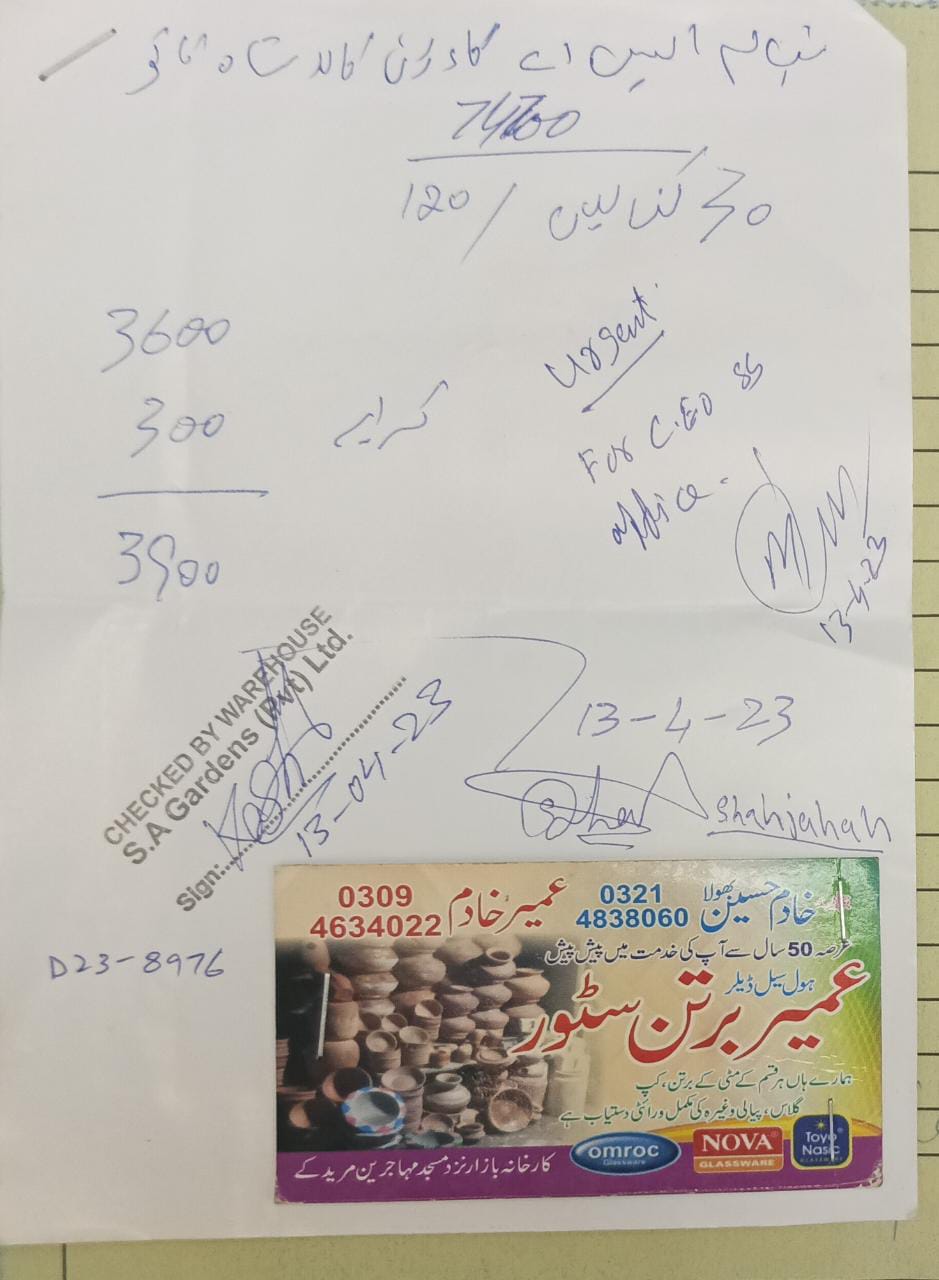 ایس اے گارڈن کالا شاہ کاکو
30 / 120
3600
300 کرایہ
3900
Urgent.
For C.EO SS
office.
13-4-23
CHECKED BY WAREHOUSE
S.A Gardens (Pvt) Ltd.
Sign:
13-04-23
13-4-23
Shahjahan
D23-8976
خادم حسین بھولا 0321 4838060
عمیر خادم 0309 4634022
عرصہ 50 سال سے آپ کی خدمت میں پیش پیش
ہول سیل ڈیلر
عمیر برتن سٹور
ہمارے ہاں ہر قسم کے مٹی کے برتن، کپ
گلاس، پیالی وغیرہ کی مکمل ورائٹی دستیاب ہے
omroc Glassware
NOVA GLASSWARE
Toyo Nasic GLASSWARE
کارخانہ بازار نزد مسجد مہاجرین مریدکے